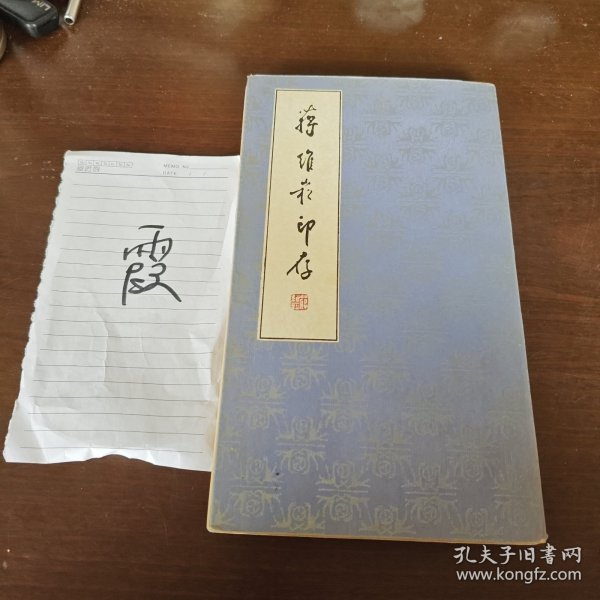 MEMO No.
DATE / /
霞
蒋维崧印存
孔夫子旧书网
www.kongfz.com